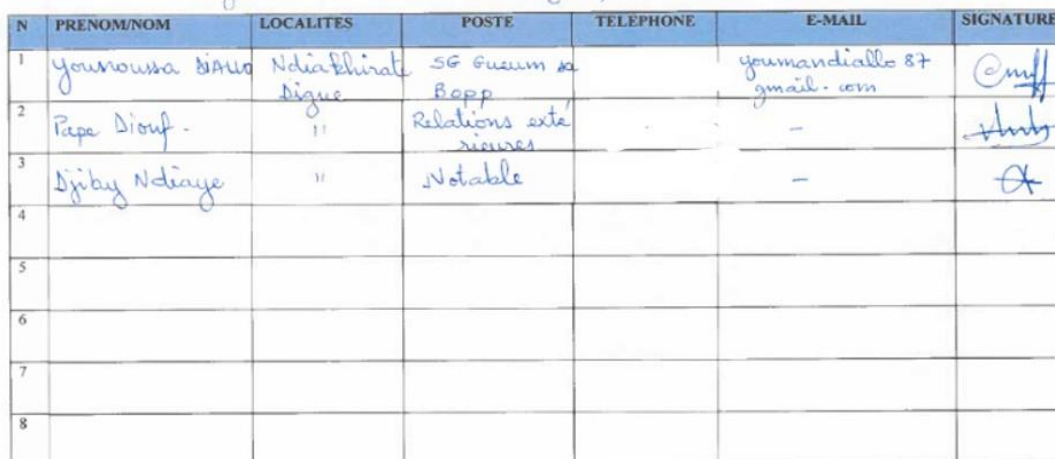 N PRENOM/NOM LOCALITES POSTE TELEPHONE E-MAIL SIGNATURE
1 Younoussa DIALLO Ndiakhirate SG Gueum sa youmandiallo 87
Digue Bopp gmail.com
2 Pape Diouf. " Relations exté -
rieures
3 Djiby Ndiaye " Notable -
4
5
6
7
8